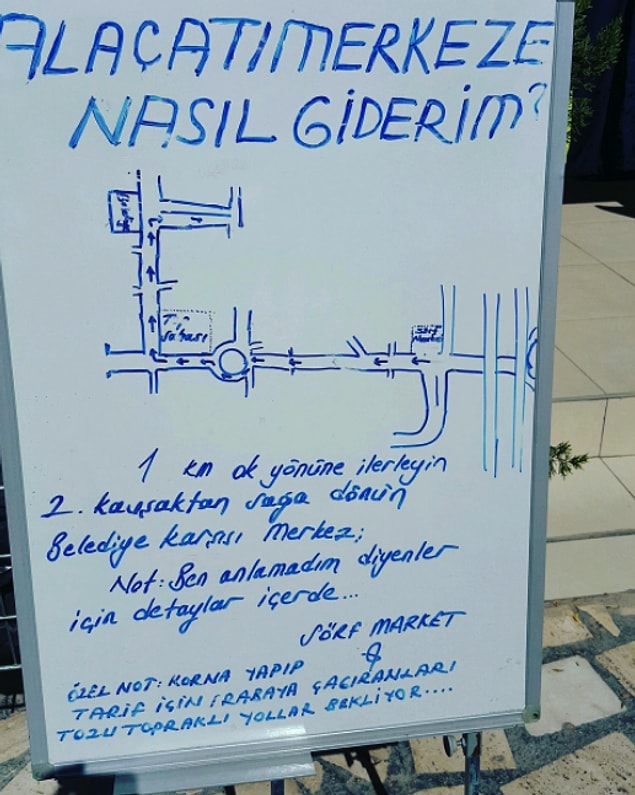 ALAÇATI MERKEZE
NASIL GİDERİM?
Sörf
Market
sahası
1 km ok yönüne ilerleyin
2. kavşaktan sağa dönün
Belediye karşısı Merkez;
Not: Ben anlamadım diyenler
için detaylar içerde...
SÖRF MARKET
ÖZEL NOT: KORNA YAPIP
TARİF İÇİN ARABAYA ÇAĞIRANLARI
TOZLU TOPRAKLI YOLLAR BEKLİYOR....